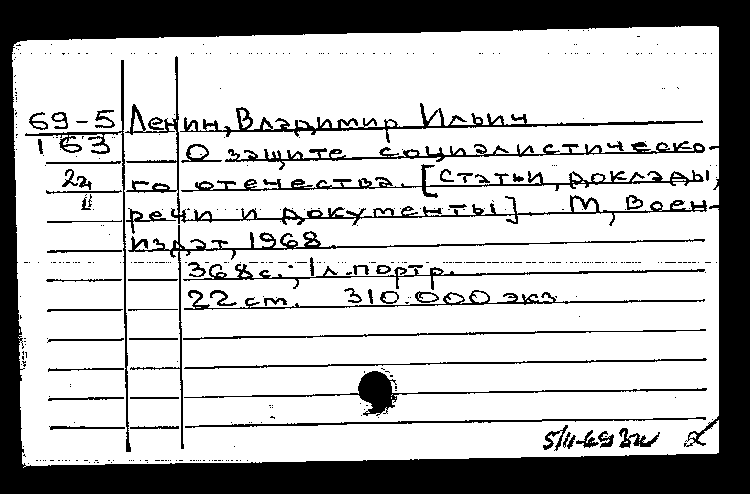 69-5 Ленин, Владимир Ильич
163 О защите социалистическо-
го отечества. [Статьи, доклады,
речи и документы]. М, Воен-
издат, 1968.
368 с.; 1 л. портр.
22 cm. 310.000 экз.
5/II-69